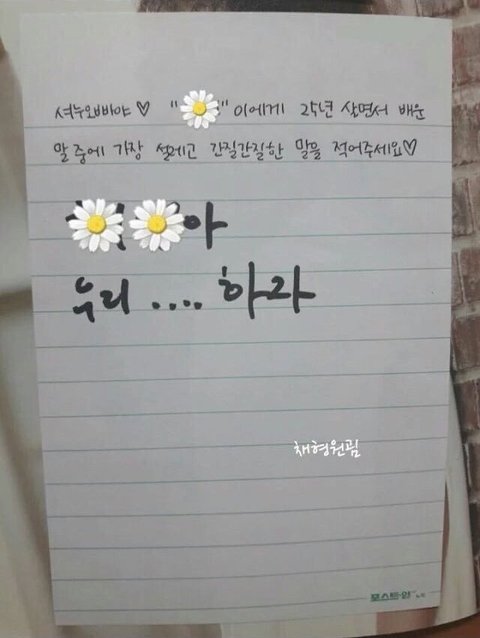 셔누오빠야♡ " "이에게 25년 살면서 배운
말 중에 가장 설레고 간질간질한 말을 적어주세요♡
아
우리 .... 하자
채형원림
포스트-잇